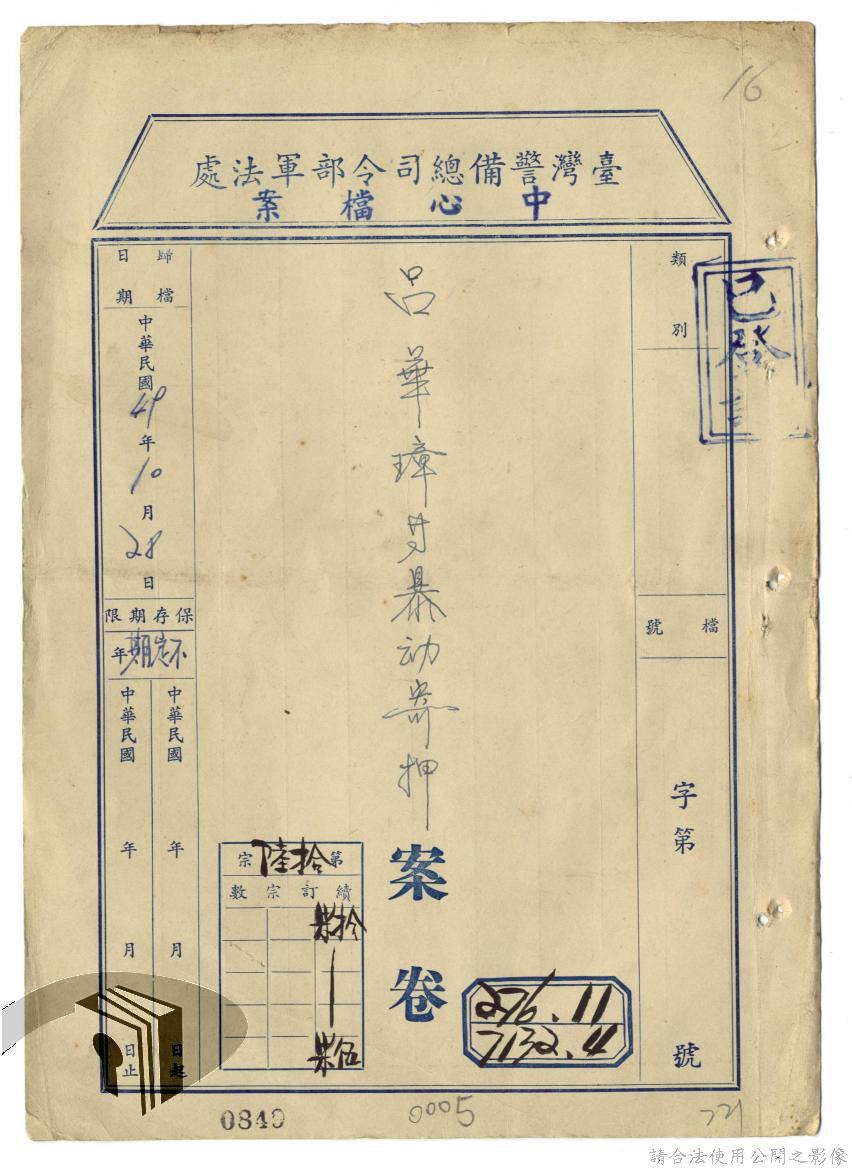 16
臺灣警備總司令部軍法處
中心檔案
類別
已登
檔號
字第
號
呂華璋等暴動寄押
案卷
276.11
7132.4
第拾陸宗
續訂宗數
歸檔日期
中華民國49年10月28日
保存期限
年
中華民國 年 月 日起
中華民國 年 月 日止
0849
0005
221
請合法使用公開之影像